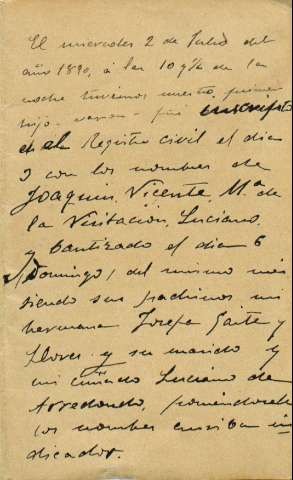 El miercoles 2 de Julio del
año 1890, á las 10 y ½ de la
noche tuvimos nuestro primer
hijo - varon - fué inscripto
en el Registro civil el dia
3 con los nombres de
Joaquin, Vicente, Mª de
la Visitación, Luciano,
y bautizado el dia 6
(Domingo) del mismo mes
siendo sus padrinos mi
hermana Josefa Gaite y
Lloves y su marido y
mi cuñado Luciano de
Arredondo, poniendosele
los nombres arriba in
dicados.